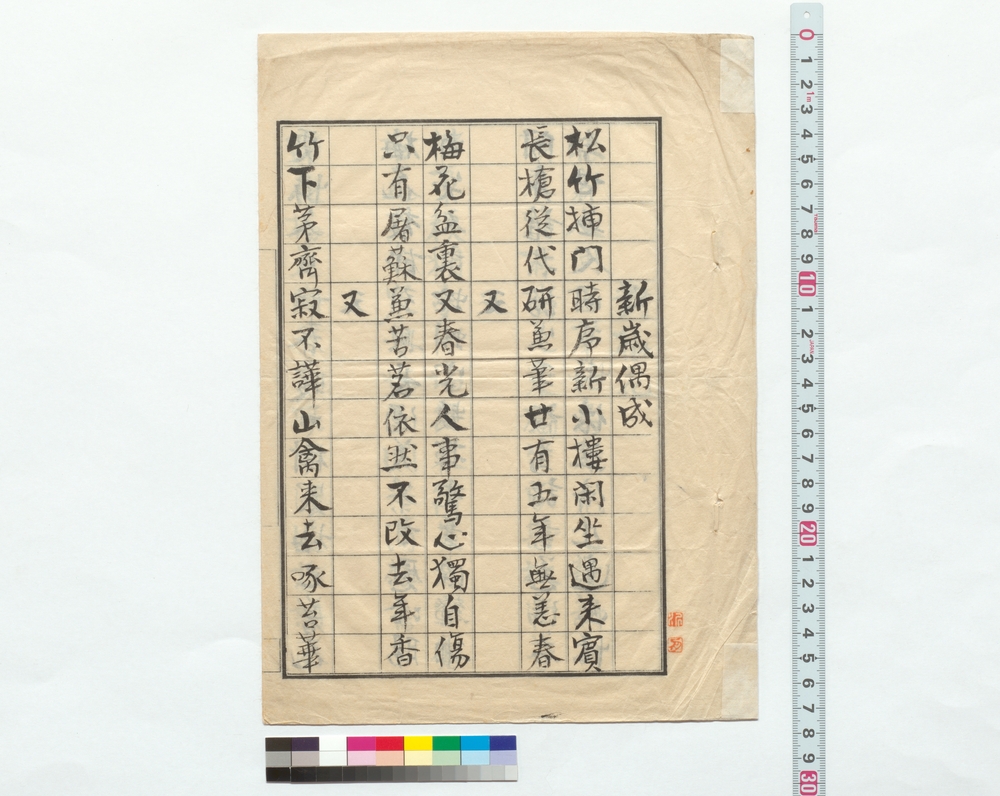 新歲偶成
松竹插门時序新小樓闲坐遇来賓
長槍從代研兼筆廿有五年無恙春
又
梅花盆裏又春光人事驚心獨自傷
只有屠蘇兼苦茗依然不改去年香
又
竹下茅齊寂不譁山禽来去啄苔華
0 1 2 3 4 5 6 7 8 9 10 1 2 3 4 5 6 7 8 9 20 1 2 3 4 5 6 7 8 9 30